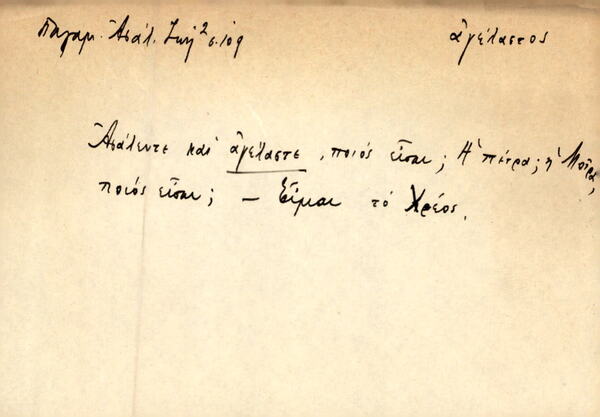 Παλαμ. Ἀσάλ. Ζωή² σ. 109 ἀγέλαστος
Ἀσάλευτε καὶ ἀγέλαστε, ποιός εἶσαι; Ἡ πέτρα; ἡ Μοῖρα;
ποιός εἶσαι; — Εἶμαι τό Χρέος.